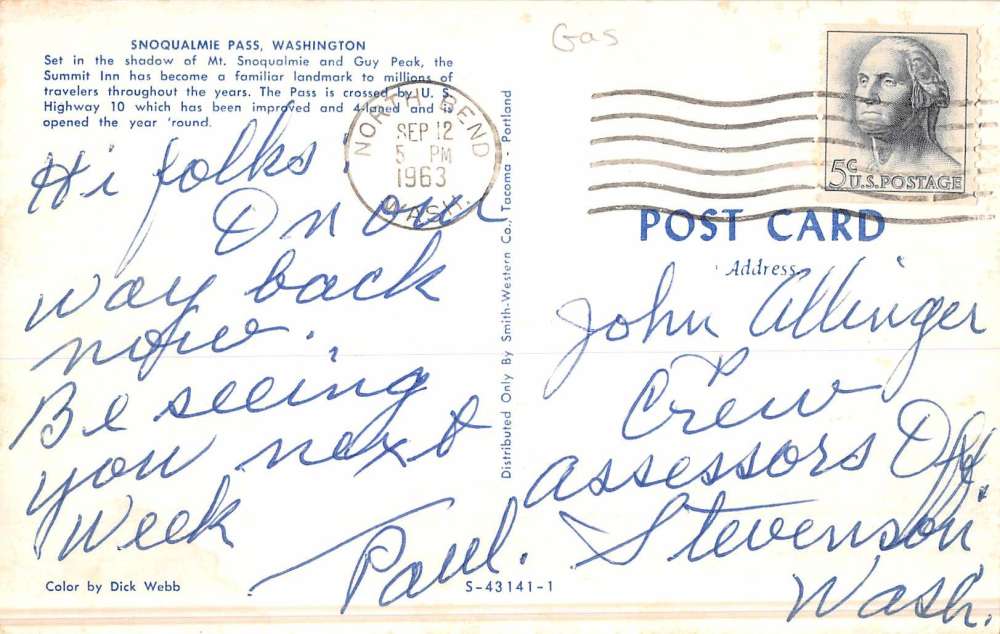 SNOQUALMIE PASS, WASHINGTON
Set in the shadow of Mt. Snoqualmie and Guy Peak, the
Summit Inn has become a familiar landmark to millions of
travelers throughout the years. The Pass is crossed by U. S.
Highway 10 which has been improved and 4-laned and is
opened the year 'round.
Hi folks!
On our
way back
now.
Be seeing
you next
Week
Paul.
Color by Dick Webb
S-43141-1
Distributed Only By Smith-Western Co., Tacoma - Portland
Gas
NORTH BEND
SEP 12
5 PM
1963
WASH.
5c
U.S. POSTAGE
POST CARD
Address
John Allinger
& Crew
assessors Off.
Stevenson
Wash.